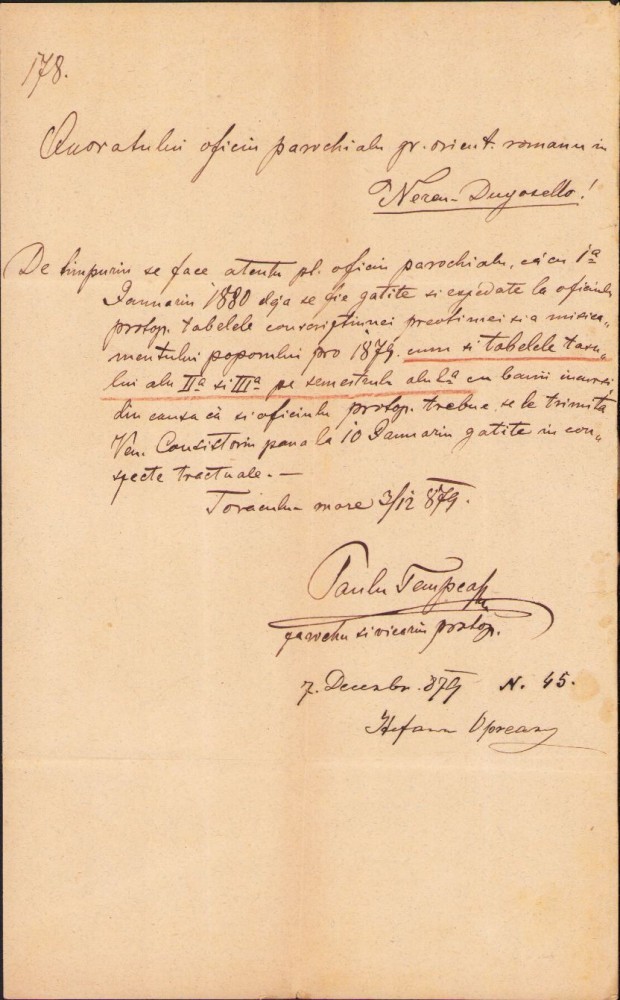 178.
Onoratului oficiu parochialu gr. orient. romanu in
Nereu-Dugosello!
De timpuriu se face atentu pl. oficiu parochialu, cá cu 1ª
Januariu 1880 deja se fie gatite si espedate la oficiulu
protop. tabelele conscriptiunei preotimei si a misca„
mentului poporului pro 1879. cum si tabelele tasu„
lui alu IIª si IIIª pe semestrulu alu 2ª cu banii incursi
din causa cá si oficiulu protop. trebue se le trimita
Ven. Consistoriu pana la 10 Januariu gatite in con„
specte tractuale. —
Toraculu mare 3/12 879.
Paulu Tempea
parochu si vicariu protop.
7. Decembr. 879 N. 45.
Stefanu Opreanu